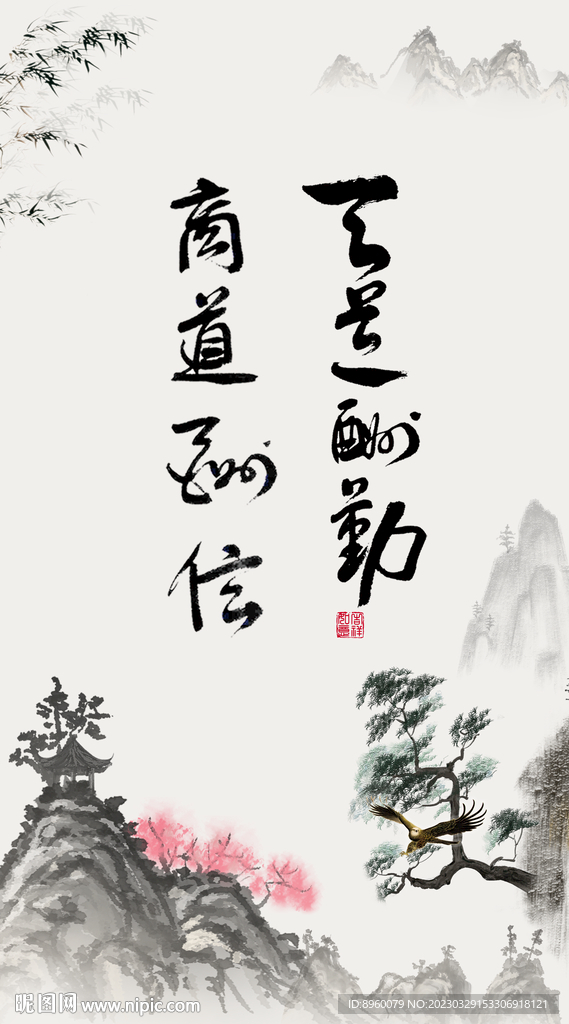 天道酬勤
商道酬信
吉祥如意
昵图网 www.nipic.com
ID:8960079 NO:20230329153306918121